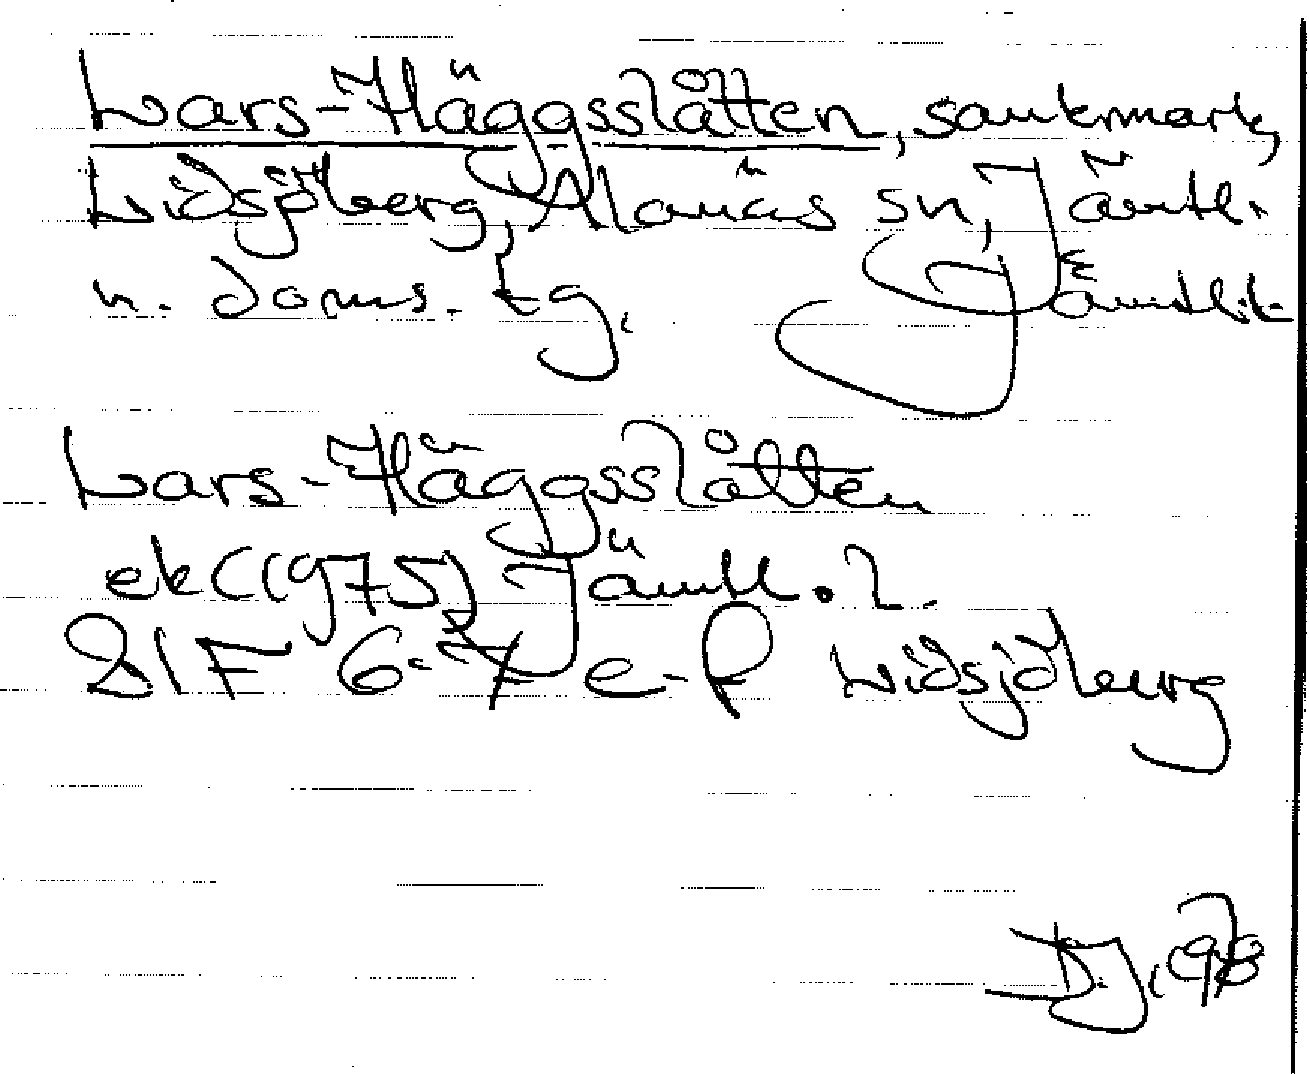 Lars-Häggsslåtten, sankmark,
Lidsjöberg, Alanäs sn, Jämtl.
n. doms. tg, Jämtl. l.
Lars-Häggsslåtten
ek (1975) Jämtl. l.
21F 6-7 e-f Lidsjöberg
D.J. 1978